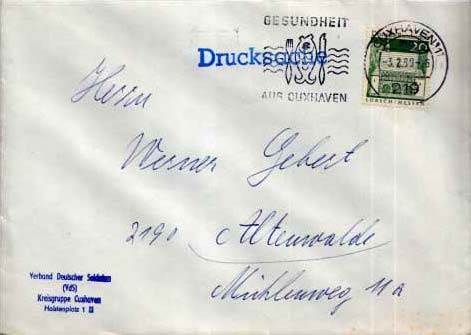 GESUNDHEIT
AUS CUXHAVEN
CUXHAVEN 1
-3.2.69-
219
20
LORSCH/HESSEN
Drucksache
Herrn
Werner Gebert
2190 Altenwalde
Mühlenweg 11a
Verband Deutscher Soldaten
(VdS)
Kreisgruppe Cuxhaven
Holstenplatz 1 III